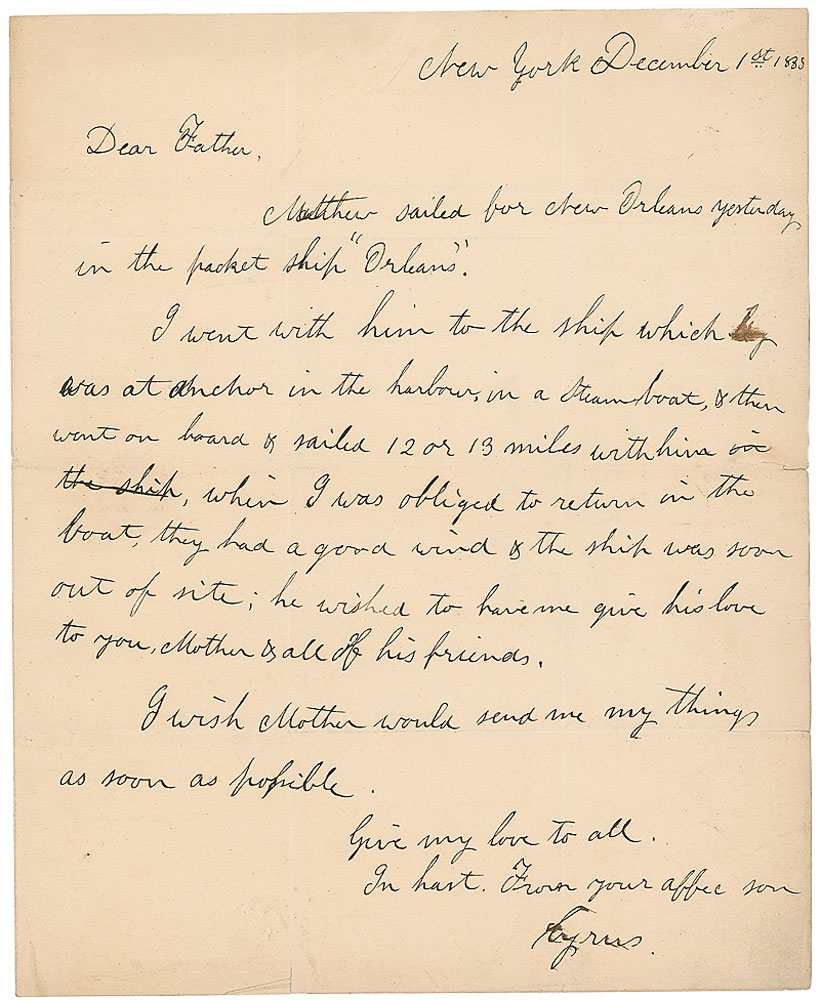 New York December 1st 1835
Dear Father,
Matthew sailed for New Orleans yesterday
in the packet ship "Orleans".
I went with him to the ship which
was at anchor in the harbour, in a Steam boat, & then
went on board & sailed 12 or 13 miles with him in
the ship, when I was obliged to return in the
boat, they had a good wind & the ship was soon
out of site; he wished to have me give his love
to you, Mother & all of his friends.
I wish Mother would send me my things
as soon as possible.
Give my love to all.
In hast. From your affec son
Cyrus.